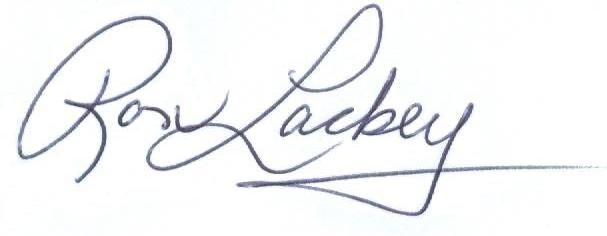 Ron Lackey